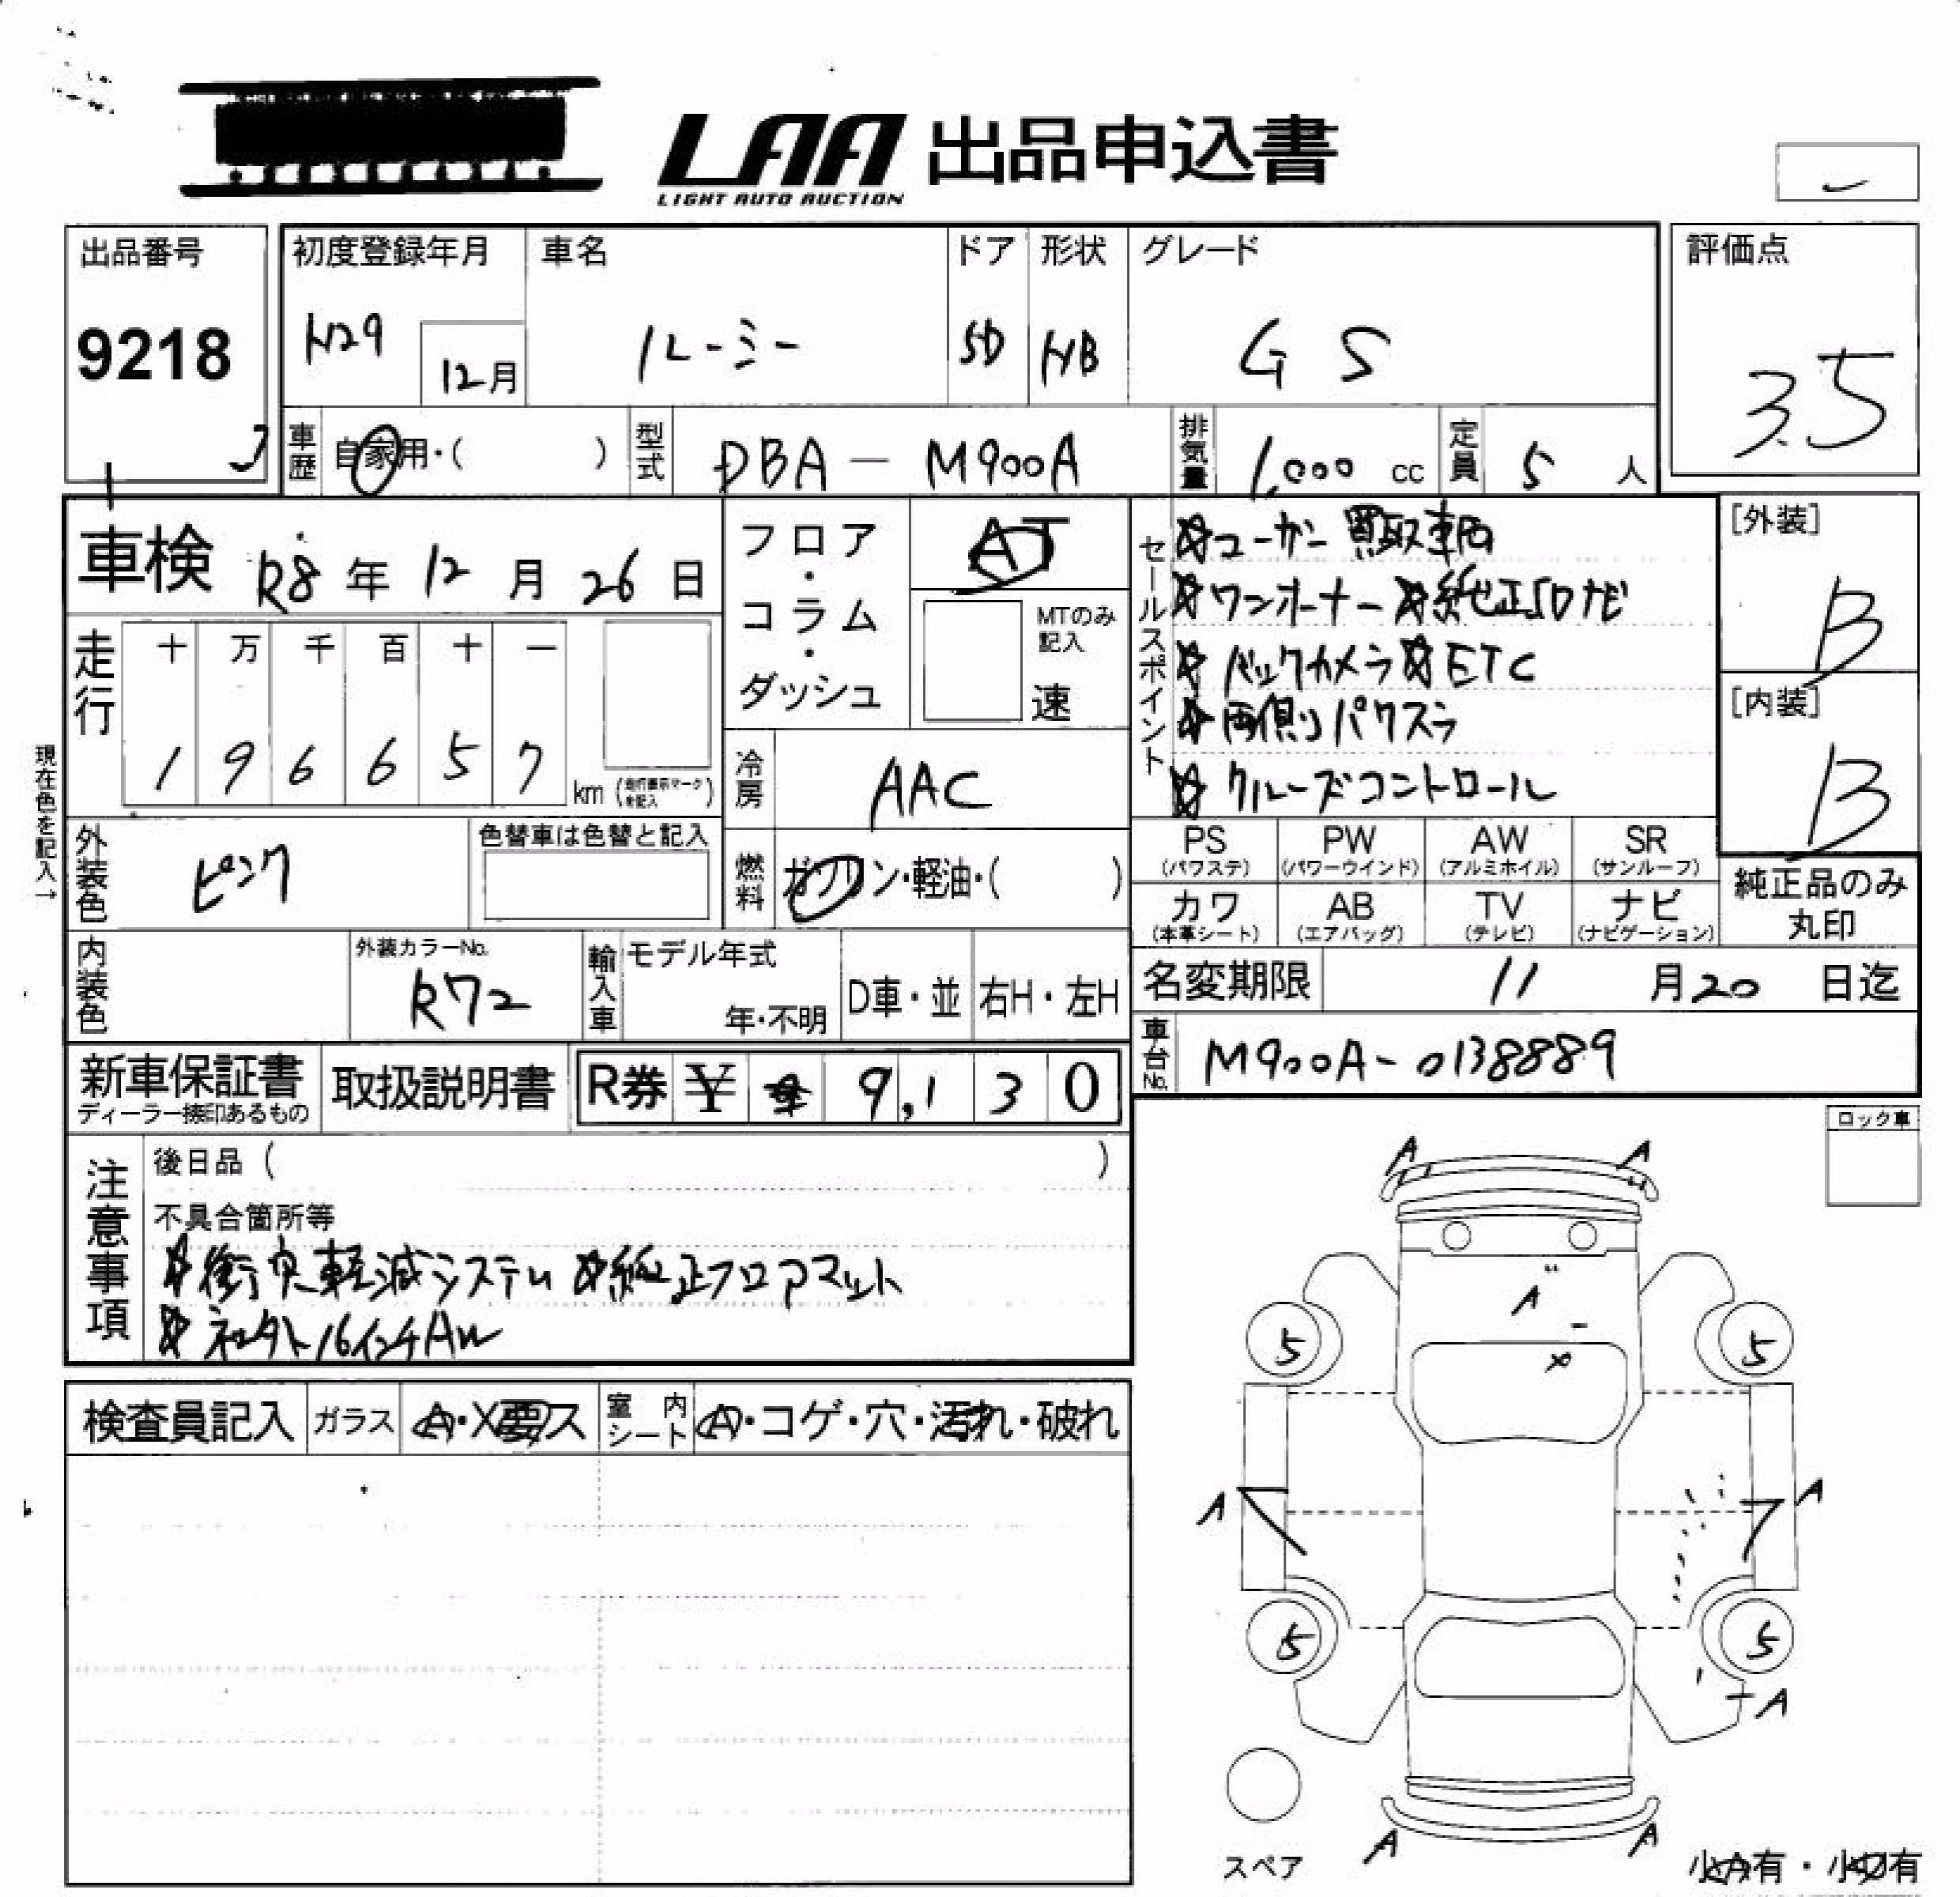 LAA 出品申込書
LIGHT AUTO AUCTION
出品番号
9218
初度登録年月
H29
12月
車名
ルーミー
ドア
5D
形状
HB
グレード
G S
評価点
3.5
車歴
自家用・( )
型式
DBA - M900A
排気量
1,000 cc
定員
5 人
車検
R8 年 12 月 26 日
走行
十 万 千 百 十 一
1 9 6 6 5 7
km (走行表示マークを記入)
現在色を記入→
外装色
ピンク
色替車は色替と記入
内装色
外装カラーNo.
R72
フロア・コラム・ダッシュ
AT
MTのみ記入
速
冷房
AAC
燃料
ガソリン・軽油・( )
輸入車
モデル年式
年・不明
D車・並
右H・左H
セールスポイント
☆ユーザー買取車両
☆ワンオーナー☆純正SDナビ
☆バックカメラ☆ETC
☆両側パワスラ
☆クルーズコントロール
[外装]
B
[内装]
B
PS (パワステ)
PW (パワーウインド)
AW (アルミホイル)
SR (サンルーフ)
カワ (本革シート)
AB (エアバッグ)
TV (テレビ)
ナビ (ナビゲーション)
純正品のみ
丸印
名変期限
11 月 20 日迄
車台No.
M900A-0138889
新車保証書
ディーラー捺印あるもの
取扱説明書
R券 ¥ 9,130
注意事項
後日品 ( )
不具合箇所等
☆衝突軽減システム ☆純正フロアマット
☆社外16インチAW
検査員記入
ガラス
A・X要ス
室内シート
A・コゲ・穴・汚れ・破れ
ロック車
A
A
A
X
5
5
A
A
5
5
A
A
A
スペア
小A有・小U有